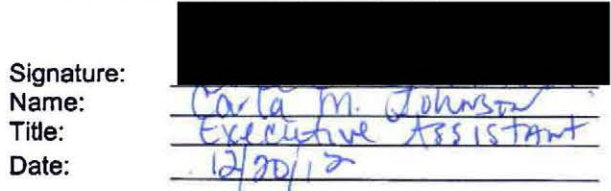 Signature:
Name: Carla M. Johnson
Title: Executive Assistant
Date: 12/20/12